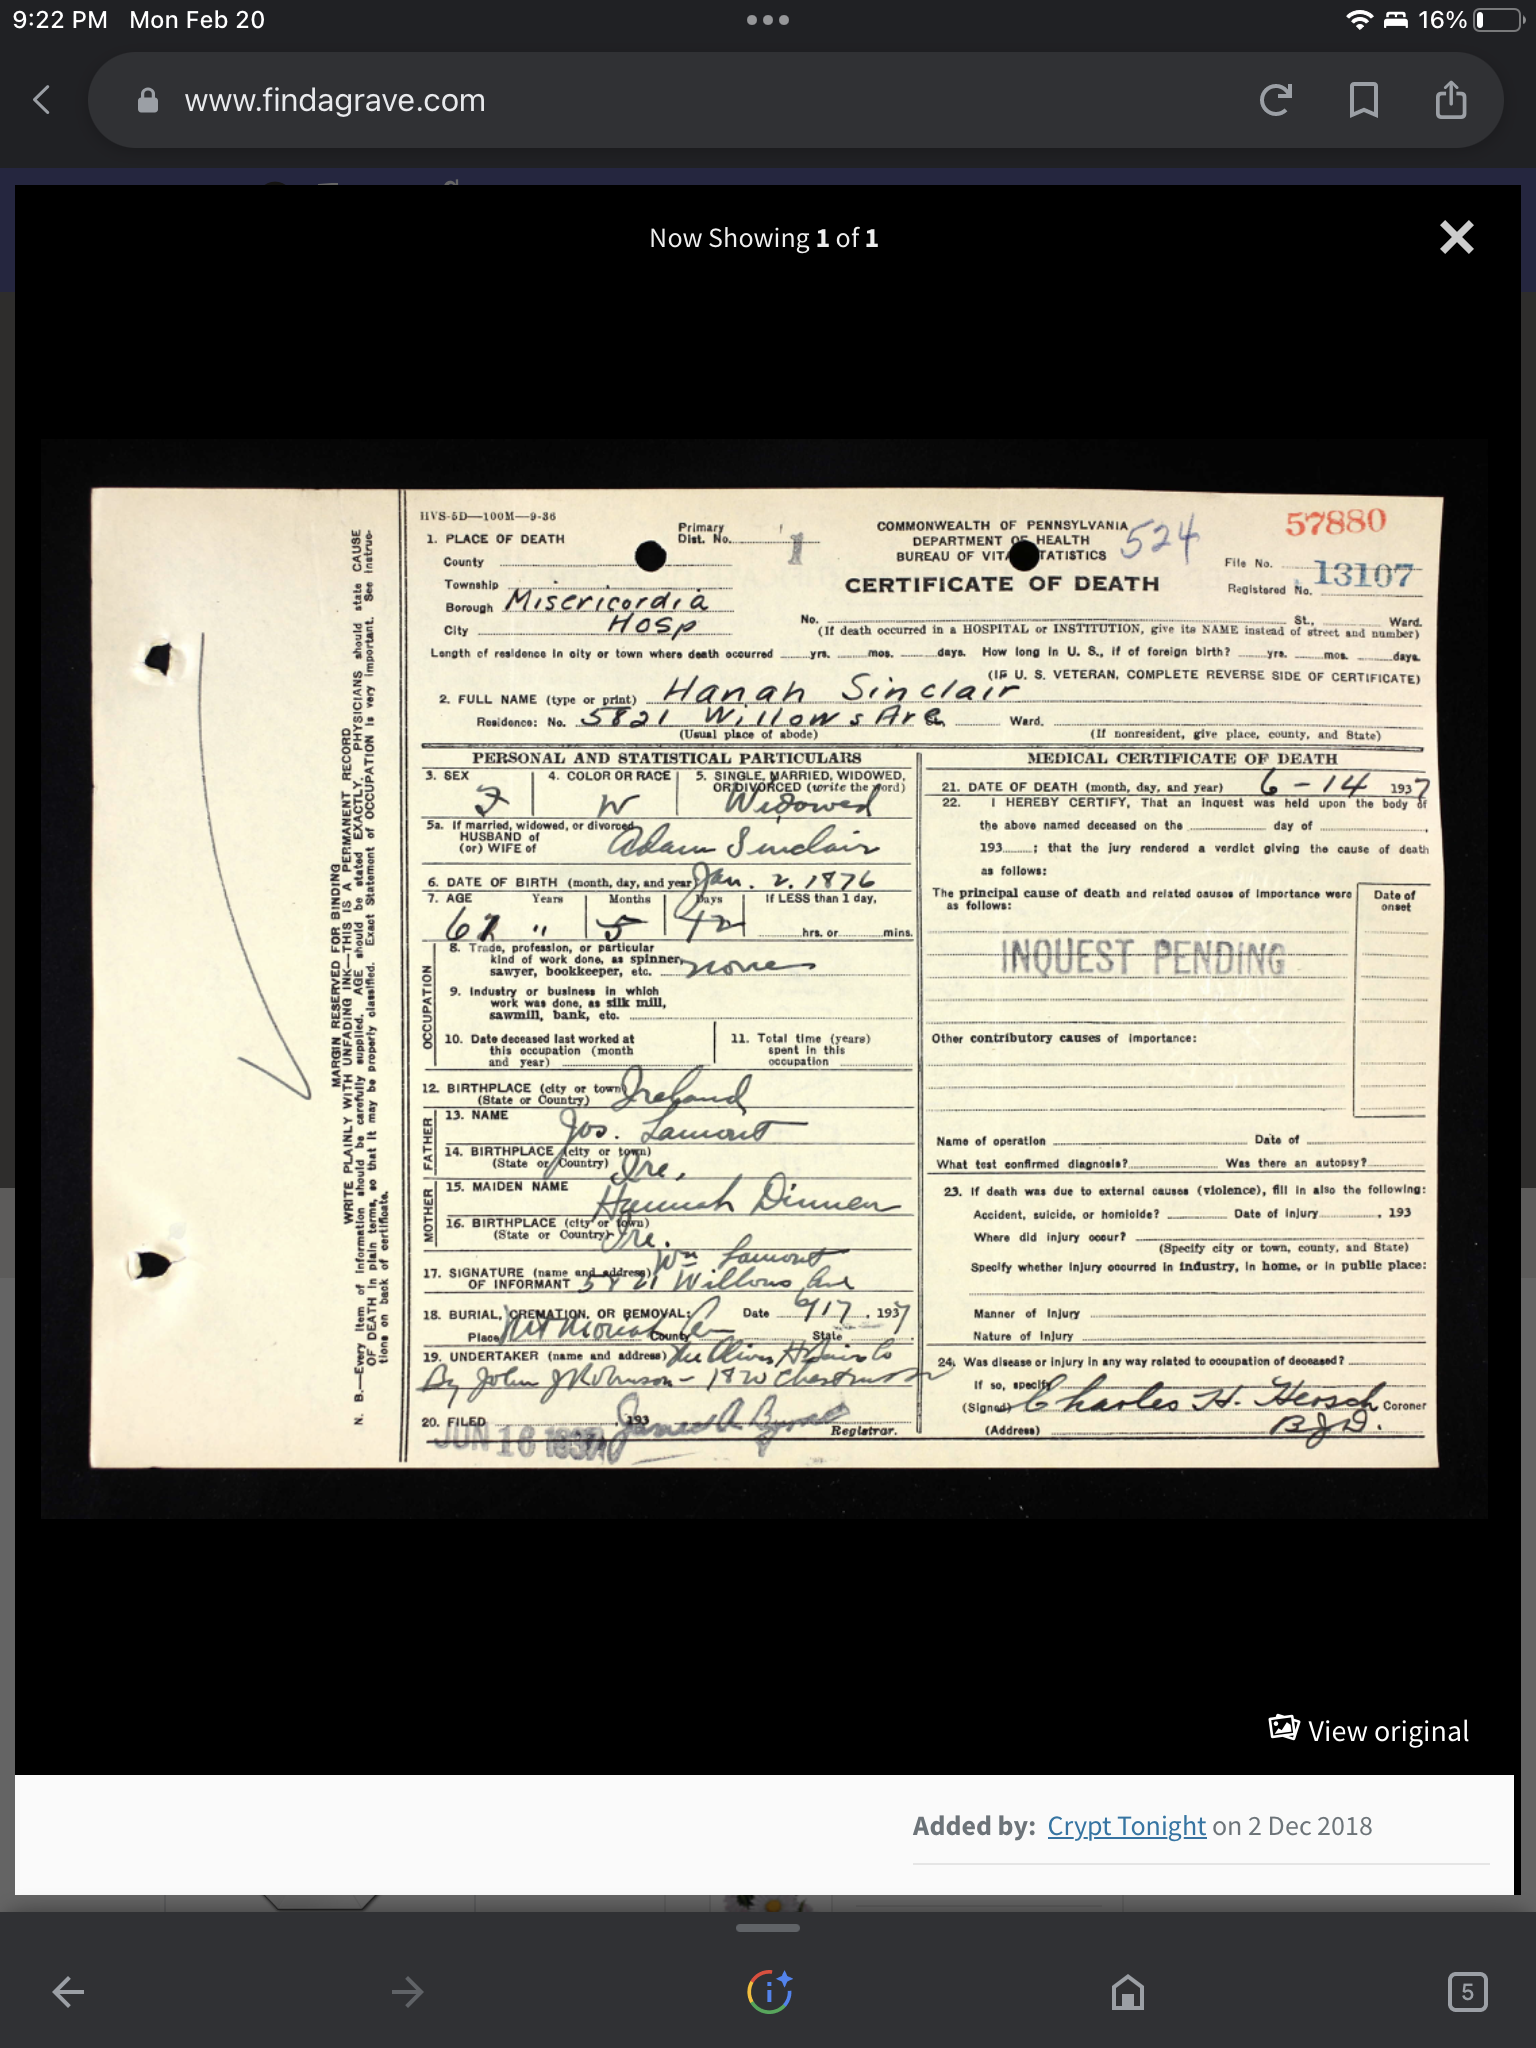 9:22 PM Mon Feb 20
16%
www.findagrave.com
Now Showing 1 of 1
HVS-5D—100M—9-36
1. PLACE OF DEATH
Primary
Dist. No. 1
County
Township
Borough Misericordia
City Hosp
COMMONWEALTH OF PENNSYLVANIA
DEPARTMENT OF HEALTH
BUREAU OF VITAL STATISTICS
524
CERTIFICATE OF DEATH
57880
File No.
13107
Registered No.
No. St., Ward.
(If death occurred in a HOSPITAL or INSTITUTION, give its NAME instead of street and number)
Length of residence in city or town where death occurred yrs. mos. days. How long in U. S., if of foreign birth? yrs. mos. days.
(IF U. S. VETERAN, COMPLETE REVERSE SIDE OF CERTIFICATE)
2. FULL NAME (type or print) Hanah Sinclair
Residence: No. 5821 Willows Ave Ward.
(Usual place of abode) (If nonresident, give place, county, and State)
MARGIN RESERVED FOR BINDING
WRITE PLAINLY WITH UNFADING INK—THIS IS A PERMANENT RECORD
N. B.—Every item of information should be carefully supplied. AGE should be stated EXACTLY. PHYSICIANS should state CAUSE
OF DEATH in plain terms, so that it may be properly classified. Exact Statement of OCCUPATION is very important. See instruc-
tions on back of certificate.
PERSONAL AND STATISTICAL PARTICULARS
3. SEX
F
4. COLOR OR RACE
W
5. SINGLE, MARRIED, WIDOWED,
OR DIVORCED (write the word)
Widowed
5a. If married, widowed, or divorced
HUSBAND of
(or) WIFE of Adam Sinclair
6. DATE OF BIRTH (month, day, and year) Jan. 2. 1876
7. AGE Years Months Days If LESS than 1 day,
" 5 12 hrs. or mins.
OCCUPATION
8. Trade, profession, or particular
kind of work done, as spinner,
sawyer, bookkeeper, etc. none
9. Industry or business in which
work was done, as silk mill,
sawmill, bank, etc.
10. Date deceased last worked at
this occupation (month
and year)
11. Total time (years)
spent in this
occupation
12. BIRTHPLACE (city or town) Ireland
(State or Country)
FATHER
13. NAME Jos. Lamont
14. BIRTHPLACE (city or town)
(State or Country) Ire.
MOTHER
15. MAIDEN NAME Hannah Dinnen
16. BIRTHPLACE (city or town)
(State or Country) Ire.
17. SIGNATURE (name and address) Wm Lamont
OF INFORMANT 5821 Willows Ave
18. BURIAL, CREMATION, OR REMOVAL: Date 6/17, 1937
Place Mt Moriah Cem County State
19. UNDERTAKER (name and address) The Oliver H Bair Co
By John J Robinson - 1820 Chestnut St
20. FILED , 193
JUN 16 1937
Registrar.
MEDICAL CERTIFICATE OF DEATH
21. DATE OF DEATH (month, day, and year) 6-14 1937
22. I HEREBY CERTIFY, That an inquest was held upon the body of
the above named deceased on the day of ,
193 ; that the jury rendered a verdict giving the cause of death
as follows:
The principal cause of death and related causes of importance were
as follows:
Date of
onset
INQUEST PENDING
Other contributory causes of importance:
Name of operation Date of
What test confirmed diagnosis? Was there an autopsy?
23. If death was due to external causes (violence), fill in also the following:
Accident, suicide, or homicide? Date of injury , 193
Where did injury occur?
(Specify city or town, county, and State)
Specify whether injury occurred in industry, in home, or in public place:
Manner of injury
Nature of injury
24. Was disease or injury in any way related to occupation of deceased?
If so, specify
(Signed) Charles H. Hersch Coroner
(Address) B.J.D.
View original
Added by: Crypt Tonight on 2 Dec 2018
5